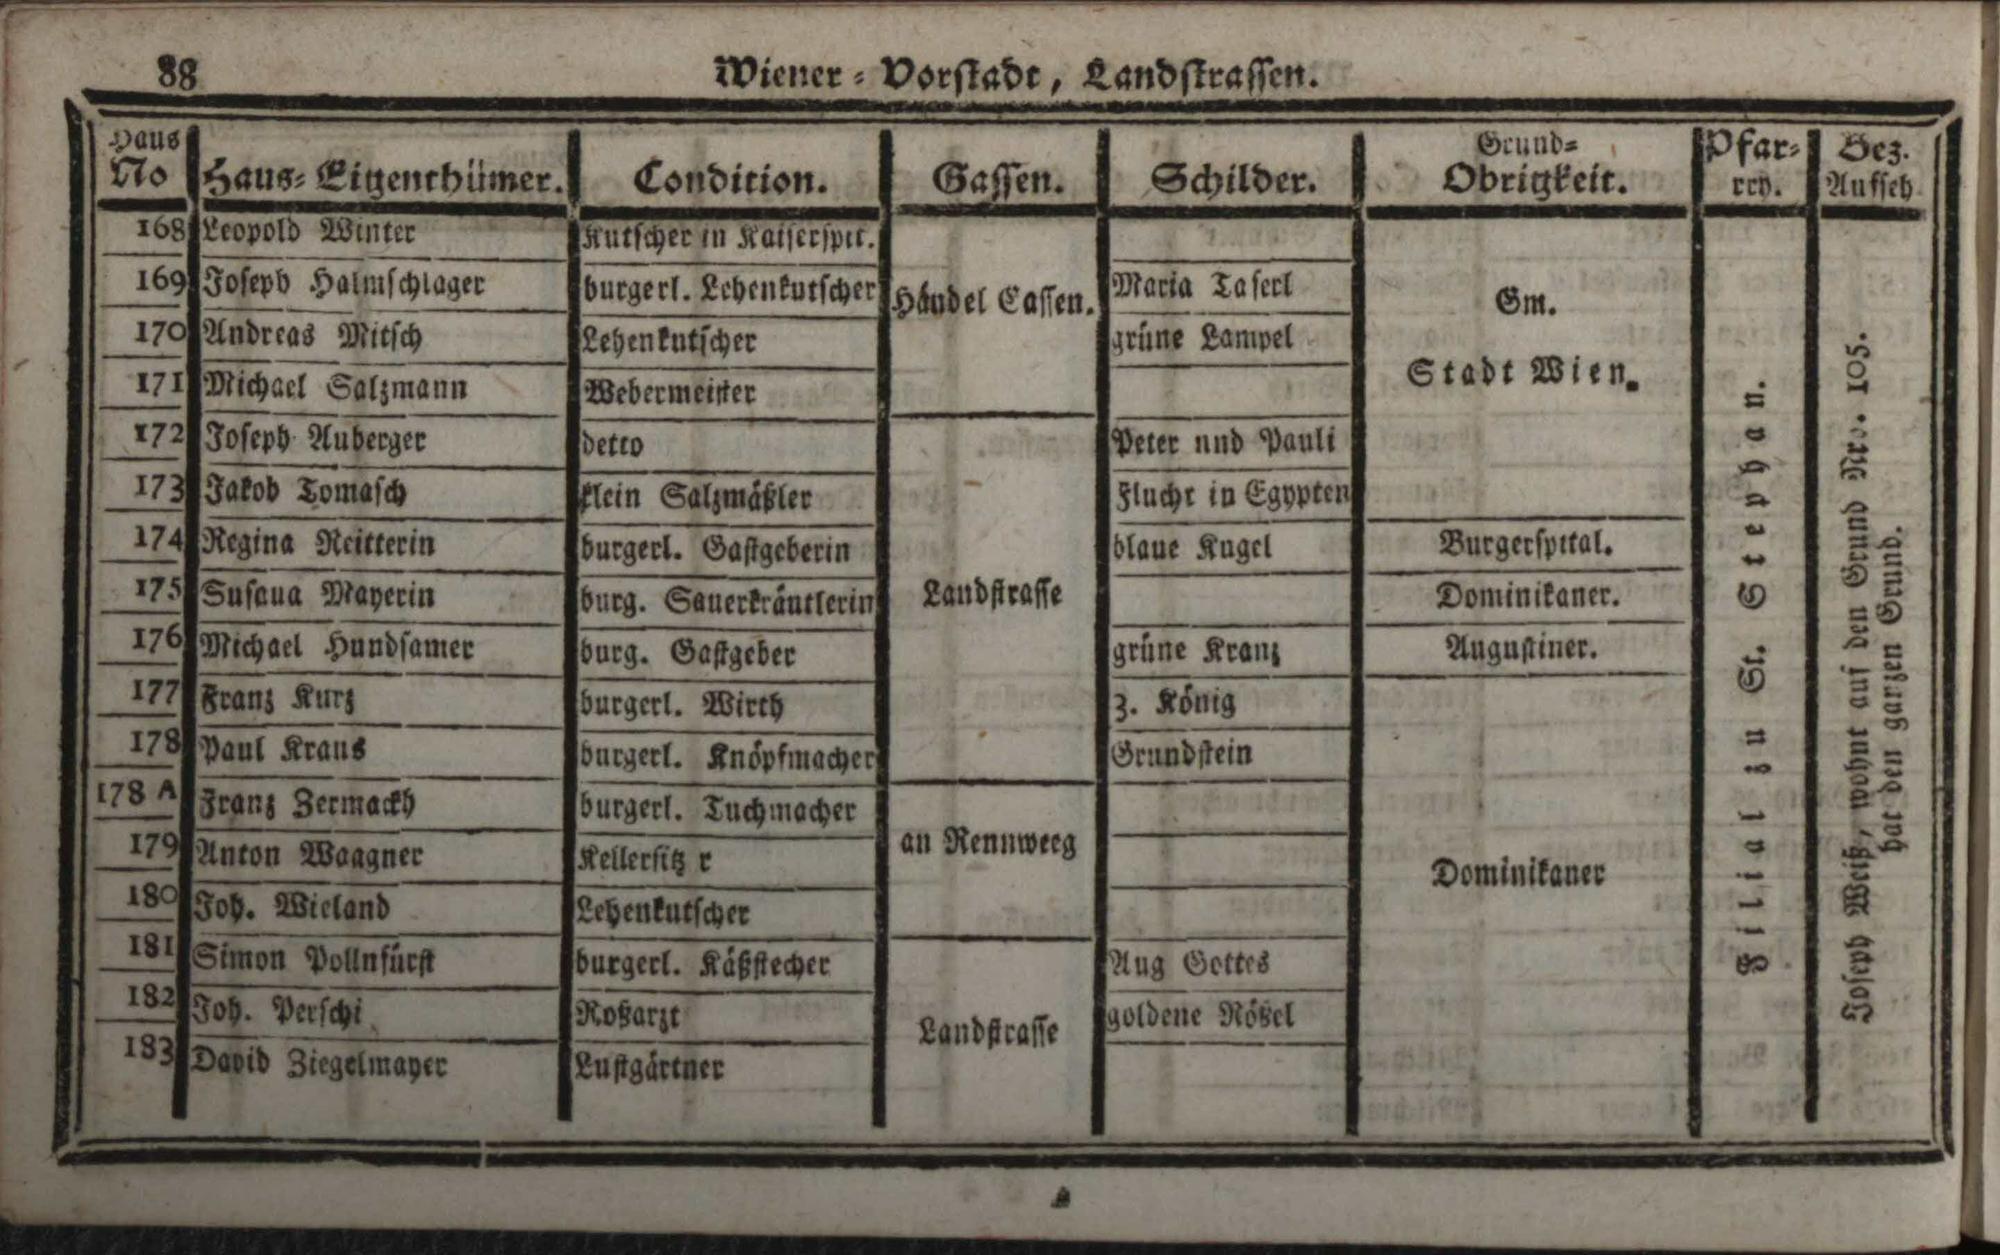 88
Wiener-Vorstadt, Landstrassen.
Haus No | Haus-Eigenthümer. | Condition. | Gassen. | Schilder. | Grund-Obrigkeit. | Pfarrey. | Bez. Aufseh.
168 | Leopold Winter | Kutscher in Kaiserspit. | Händel Cassen. | | Gm. Stadt Wien. | Filial zu St. Stephan. | Joseph Weiß, wohnt auf den Grund Nro. 105. hat den ganzen Grund.
169 | Joseph Halmschlager | burgerl. Lehenkutscher | | Maria Taferl
170 | Andreas Mitsch | Lehenkutscher | | grüne Lampel
171 | Michael Salzmann | Webermeister
172 | Joseph Auberger | detto | Landstrasse | Peter und Pauli
173 | Jakob Tomasch | klein Salzmäßler | | Flucht in Egypten
174 | Regina Reitterin | burgerl. Gastgeberin | | blaue Kugel | Burgerspital.
175 | Susaua Mayerin | burg. Sauerkräutlerin | | | Dominikaner.
176 | Michael Hundsamer | burg. Gastgeber | | grüne Kranz | Augustiner.
177 | Franz Kurz | burgerl. Wirth | | z. König | Dominikaner
178 | Paul Kraus | burgerl. Knöpfmacher | | Grundstein
178 A | Franz Zermackh | burgerl. Tuchmacher | an Rennweeg
179 | Anton Waagner | Kellersitz r
180 | Joh. Wieland | Lehenkutscher
181 | Simon Pollnfürst | burgerl. Käßstecher | Landstrasse | Aug Gottes
182 | Joh. Perschi | Roßarzt | | goldene Rößel
183 | David Ziegelmayer | Lustgärtner